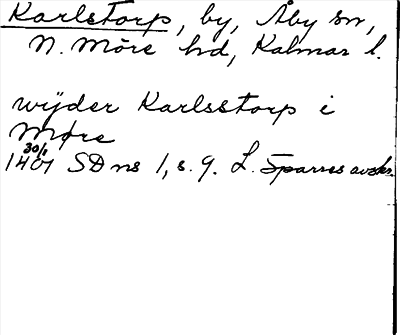 Karlstorp, by, Åby sn,
N. Möre hd, Kalmar l.
wijder Karlsstorp i
Møre
30/1
1401 SD ns 1, s. 9. L. Sparres avskr.